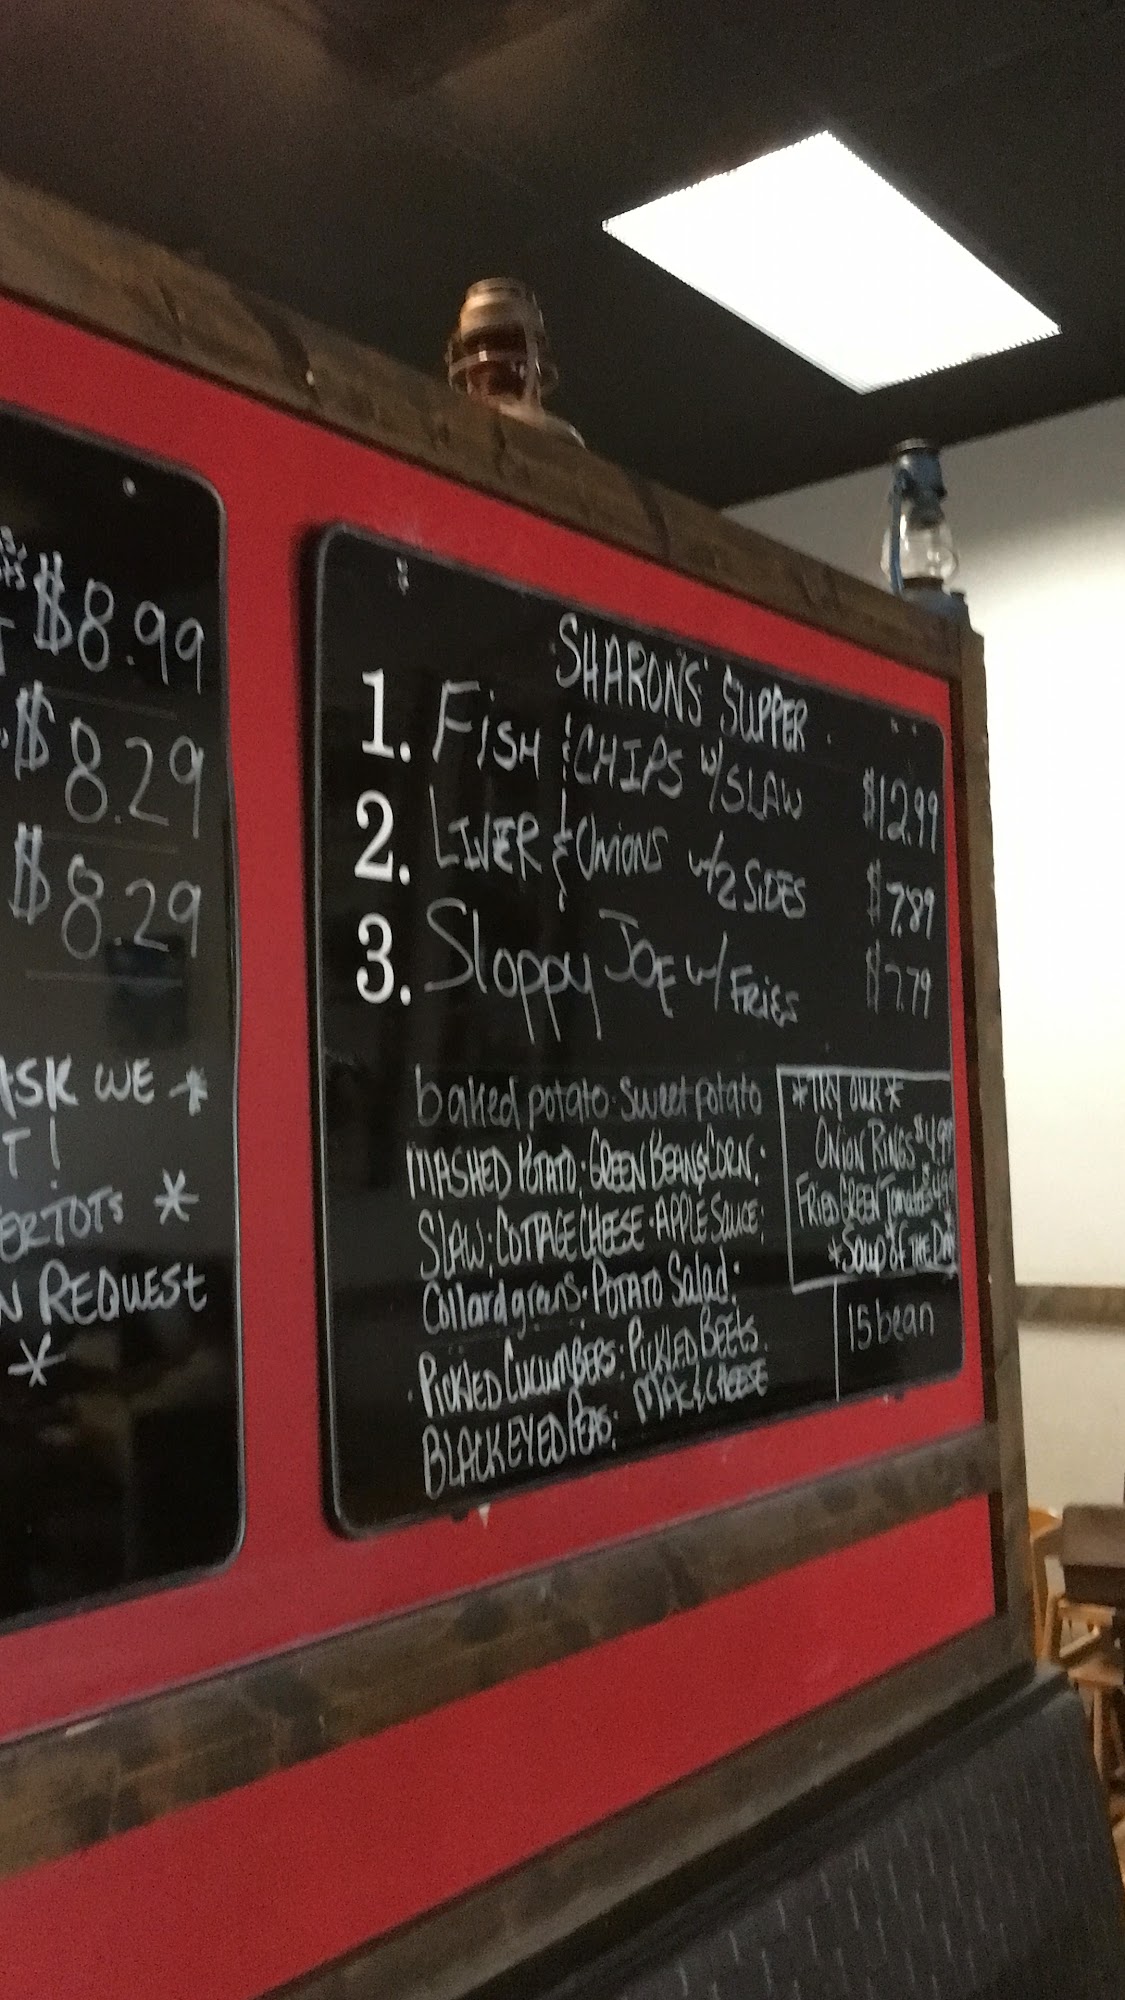 $8.99
$8.29
$8.29
ASK WE *
T!
ERTOTS *
N REQUEST
*
SHARON'S SUPPER
1. FISH & CHIPS W/SLAW $12.99
2. LIVER & ONIONS w/2 SIDES $7.89
3. Sloppy JOE w/ FRIES $7.79
baked potato · sweet potato
MASHED POTATO · GREEN BEANS · CORN ·
SLAW · COTTAGE CHEESE · APPLE SAUCE ·
Collard greens · POTATO Salad ·
· PICKLED CUCUMBERS · PICKLED BEETS ·
BLACKEYED PEAS · MAC & CHEESE
*TRY OUR*
ONION RINGS $4.99
FRIED GREEN Tomatoes $4.99
*SOUP OF THE DAY
15 bean